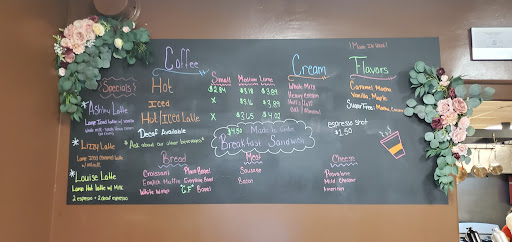 Specials
* Ashley Latte
Large Iced Latte w/ Vanilla
* Lizzy Latte
Large Iced Caramel Latte
* Louise Latte
Large Hot Latte w/ Milk
2 espresso + 2 decaf espresso
Coffee
Small Medium Large
Hot $2.84 $3.19 $3.89
Iced X $3.16 $3.89
Hot/Iced Latte X $3.65 $4.02
Decaf Available
* Ask about our other beverages *
Cream
Whole Milk
Heavy Cream
Half & Half
Oat / Almond
Flavors
Caramel Mocha
Vanilla Maple
Sugar Free:
espresso shot
$1.50
$4.50 Made to Order
Breakfast Sandwich
Bread
Croissant Plain Bagel
English Muffin Everything Bagel
White Wrap G.F Bagel
Meat
Sausage
Bacon
Cheese
Provolone
Mild Cheddar
American